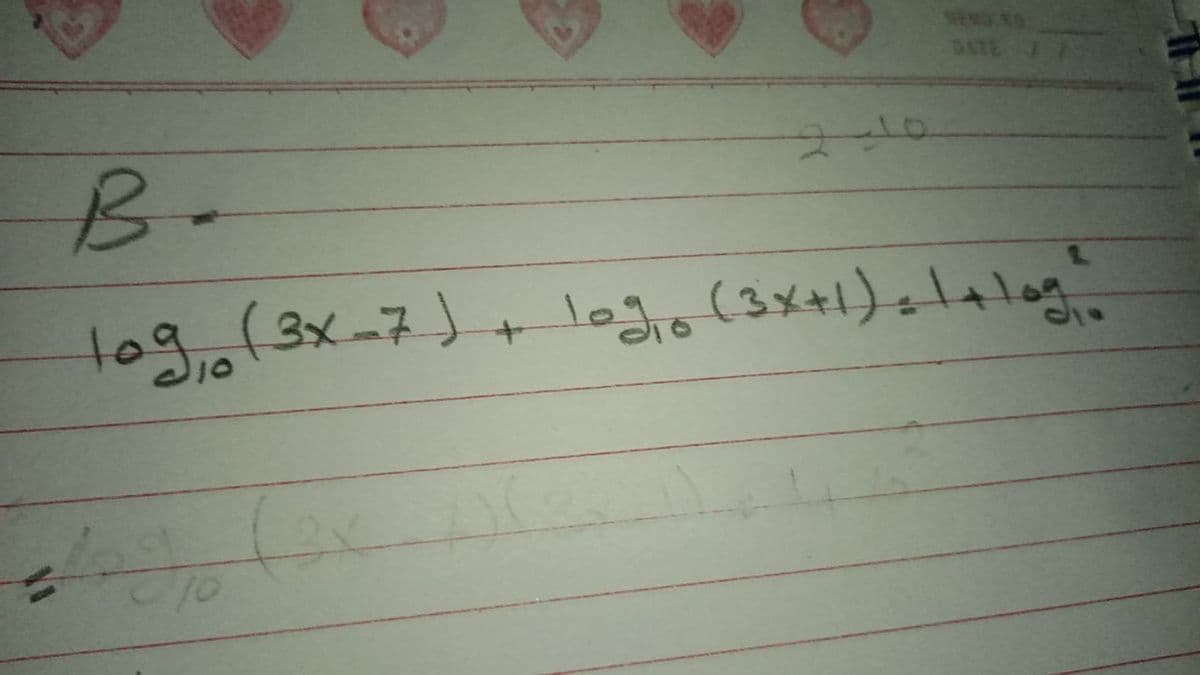 DATE / /
2-10
B-
log₁₀(3x-7) + log₁₀(3x+1)=1+log₁₀²
=log₁₀(3x-7)(